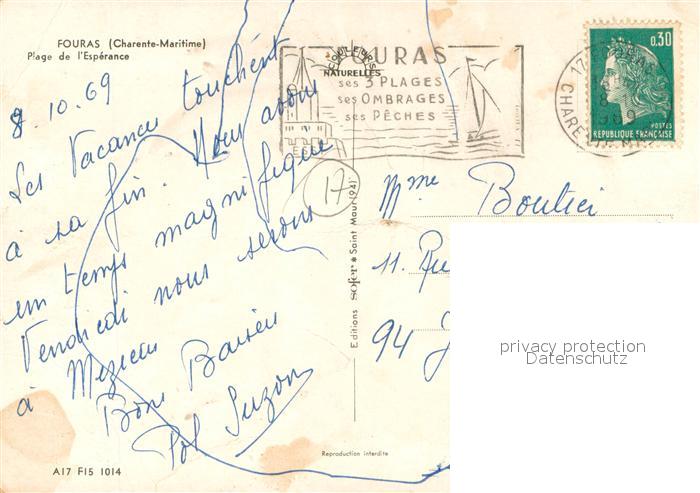 FOURAS (Charente-Maritime)
Plage de l'Espérance
8.10.69
Les Vacances touchent
à sa fin. Nous avons
un temps magnifique
Vendredi nous serons
à Mezieres
Bons Baisers
Pol Suzon
COULEURS
NATURELLES
FOURAS
ses 3 PLAGES
ses OMBRAGES
ses PÊCHES
17
CHARENTE-MME
0,30
POSTES
REPUBLIQUE FRANÇAISE
17
Editions sofer * Saint Maur (94)
Mme Boutiei
11. Ru
94 J
privacy protection
Datenschutz
Reproduction interdite
A17 F15 1014